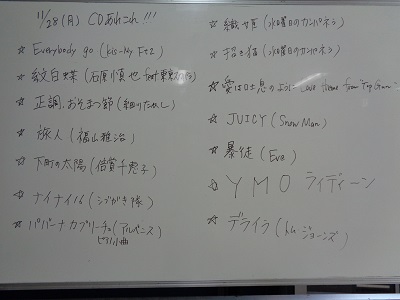 11/28(月) CDあれこれ!!!
☆ Everybody go (Kis-My-Ft2)
☆ 紋白蝶 (石原慎也 feat 東京スカパラ)
☆ 正調 おそまつ節 (細川たかし)
☆ 旅人 (福山雅治)
☆ 下町の太陽 (倍賞千恵子)
☆ ナイナイ16 (シブがき隊)
☆ パバーナ カプリーチョ (アルベニス)
ピアノ小曲
☆ 織姫 (水曜日のカンパネラ)
☆ 招き猫 (水曜日のカンパネラ)
☆ 愛は吐息のように Love theme from "Top Gun"
☆ JUICY (Snow Man)
☆ 暴徒 (Eve)
☆ YMO ライディーン
☆ デライラ (トム ジョーンズ)